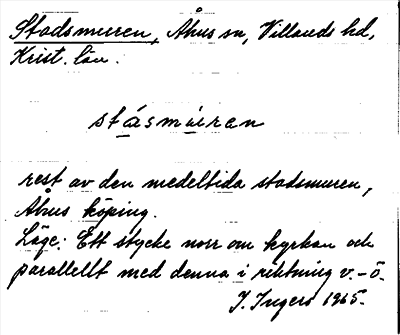 Stadsmuren, Åhus sn, Villands hd,
Krist. län.
stásmúren
rest av den medeltida stadsmuren,
Åhus köping.
Läge: Ett stycke norr om kyrkan och
parallellt med denna i riktning v.-ö.
I. Ingers 1965.